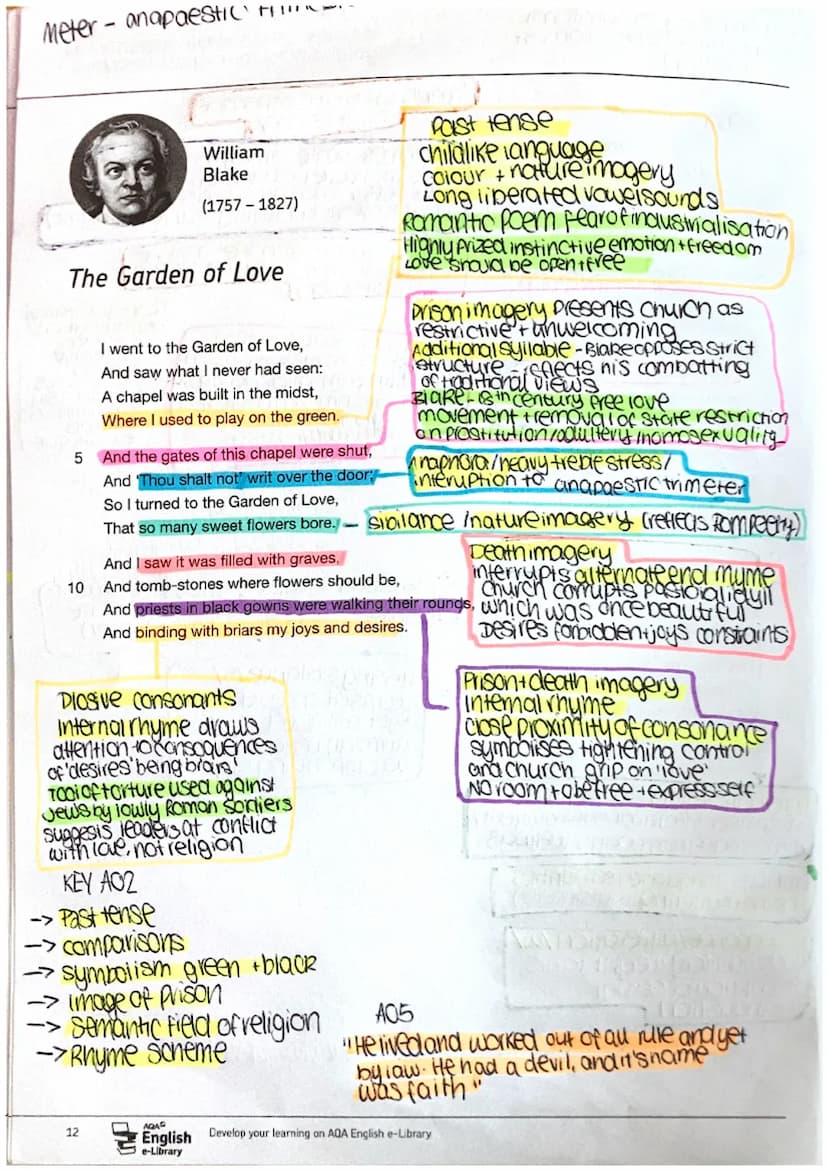 Meter - anapaestic
William
Blake
(1757 – 1827)
Past tense
Childlike language
colour + nature imagery
Long liberated vowel sounds
Romantic poem fear of industrialisation
Highly prized instinctive emotion + freedom
Love should be open + free
The Garden of Love
I went to the Garden of Love,
And saw what I never had seen:
A chapel was built in the midst,
Where I used to play on the green.
5 And the gates of this chapel were shut,
And 'Thou shalt not' writ over the door;
So I turned to the Garden of Love,
That so many sweet flowers bore.
And I saw it was filled with graves,
10 And tomb-stones where flowers should be,
And priests in black gowns were walking their rounds,
And binding with briars my joys and desires.
Prison imagery presents church as
restrictive + unwelcoming
Additional syllable - Blake opposes strict
structure - reflects his combatting
of traditional views
Blake - 18th century free love
movement + removal of state restriction
on prostitution/adultery/homosexuality
Anaphora/heavy treble stress/
interuption to anapaestic trimeter
Sibilance /nature imagery (reflects
Death imagery
interrupts alternate end rhyme
church corrupts pastoral idyll
which was once beautiful
Desires forbidden + joys constraints
Prison + death imagery
Internal rhyme
Close proximity of consonance
symbolises tightening control
and church grip on 'love'
No room to be free + express self
Plosive consonants
Internal rhyme draws
attention to consequences
of 'desires' being
Tool of torture used against
Jews by lowly Roman soldiers
suggests leaders at conflict
with love, not religion
KEY AO2
-> Past tense
-> comparisons
-> symbolism green + black
-> image of prison
-> Semantic field of religion
-> Rhyme scheme
AO5
"He lived and worked out of all rule and yet
by law. He had a devil, and it's name
was faith"
12
AQA
English
e-Library
Develop your learning on AQA English e-Library